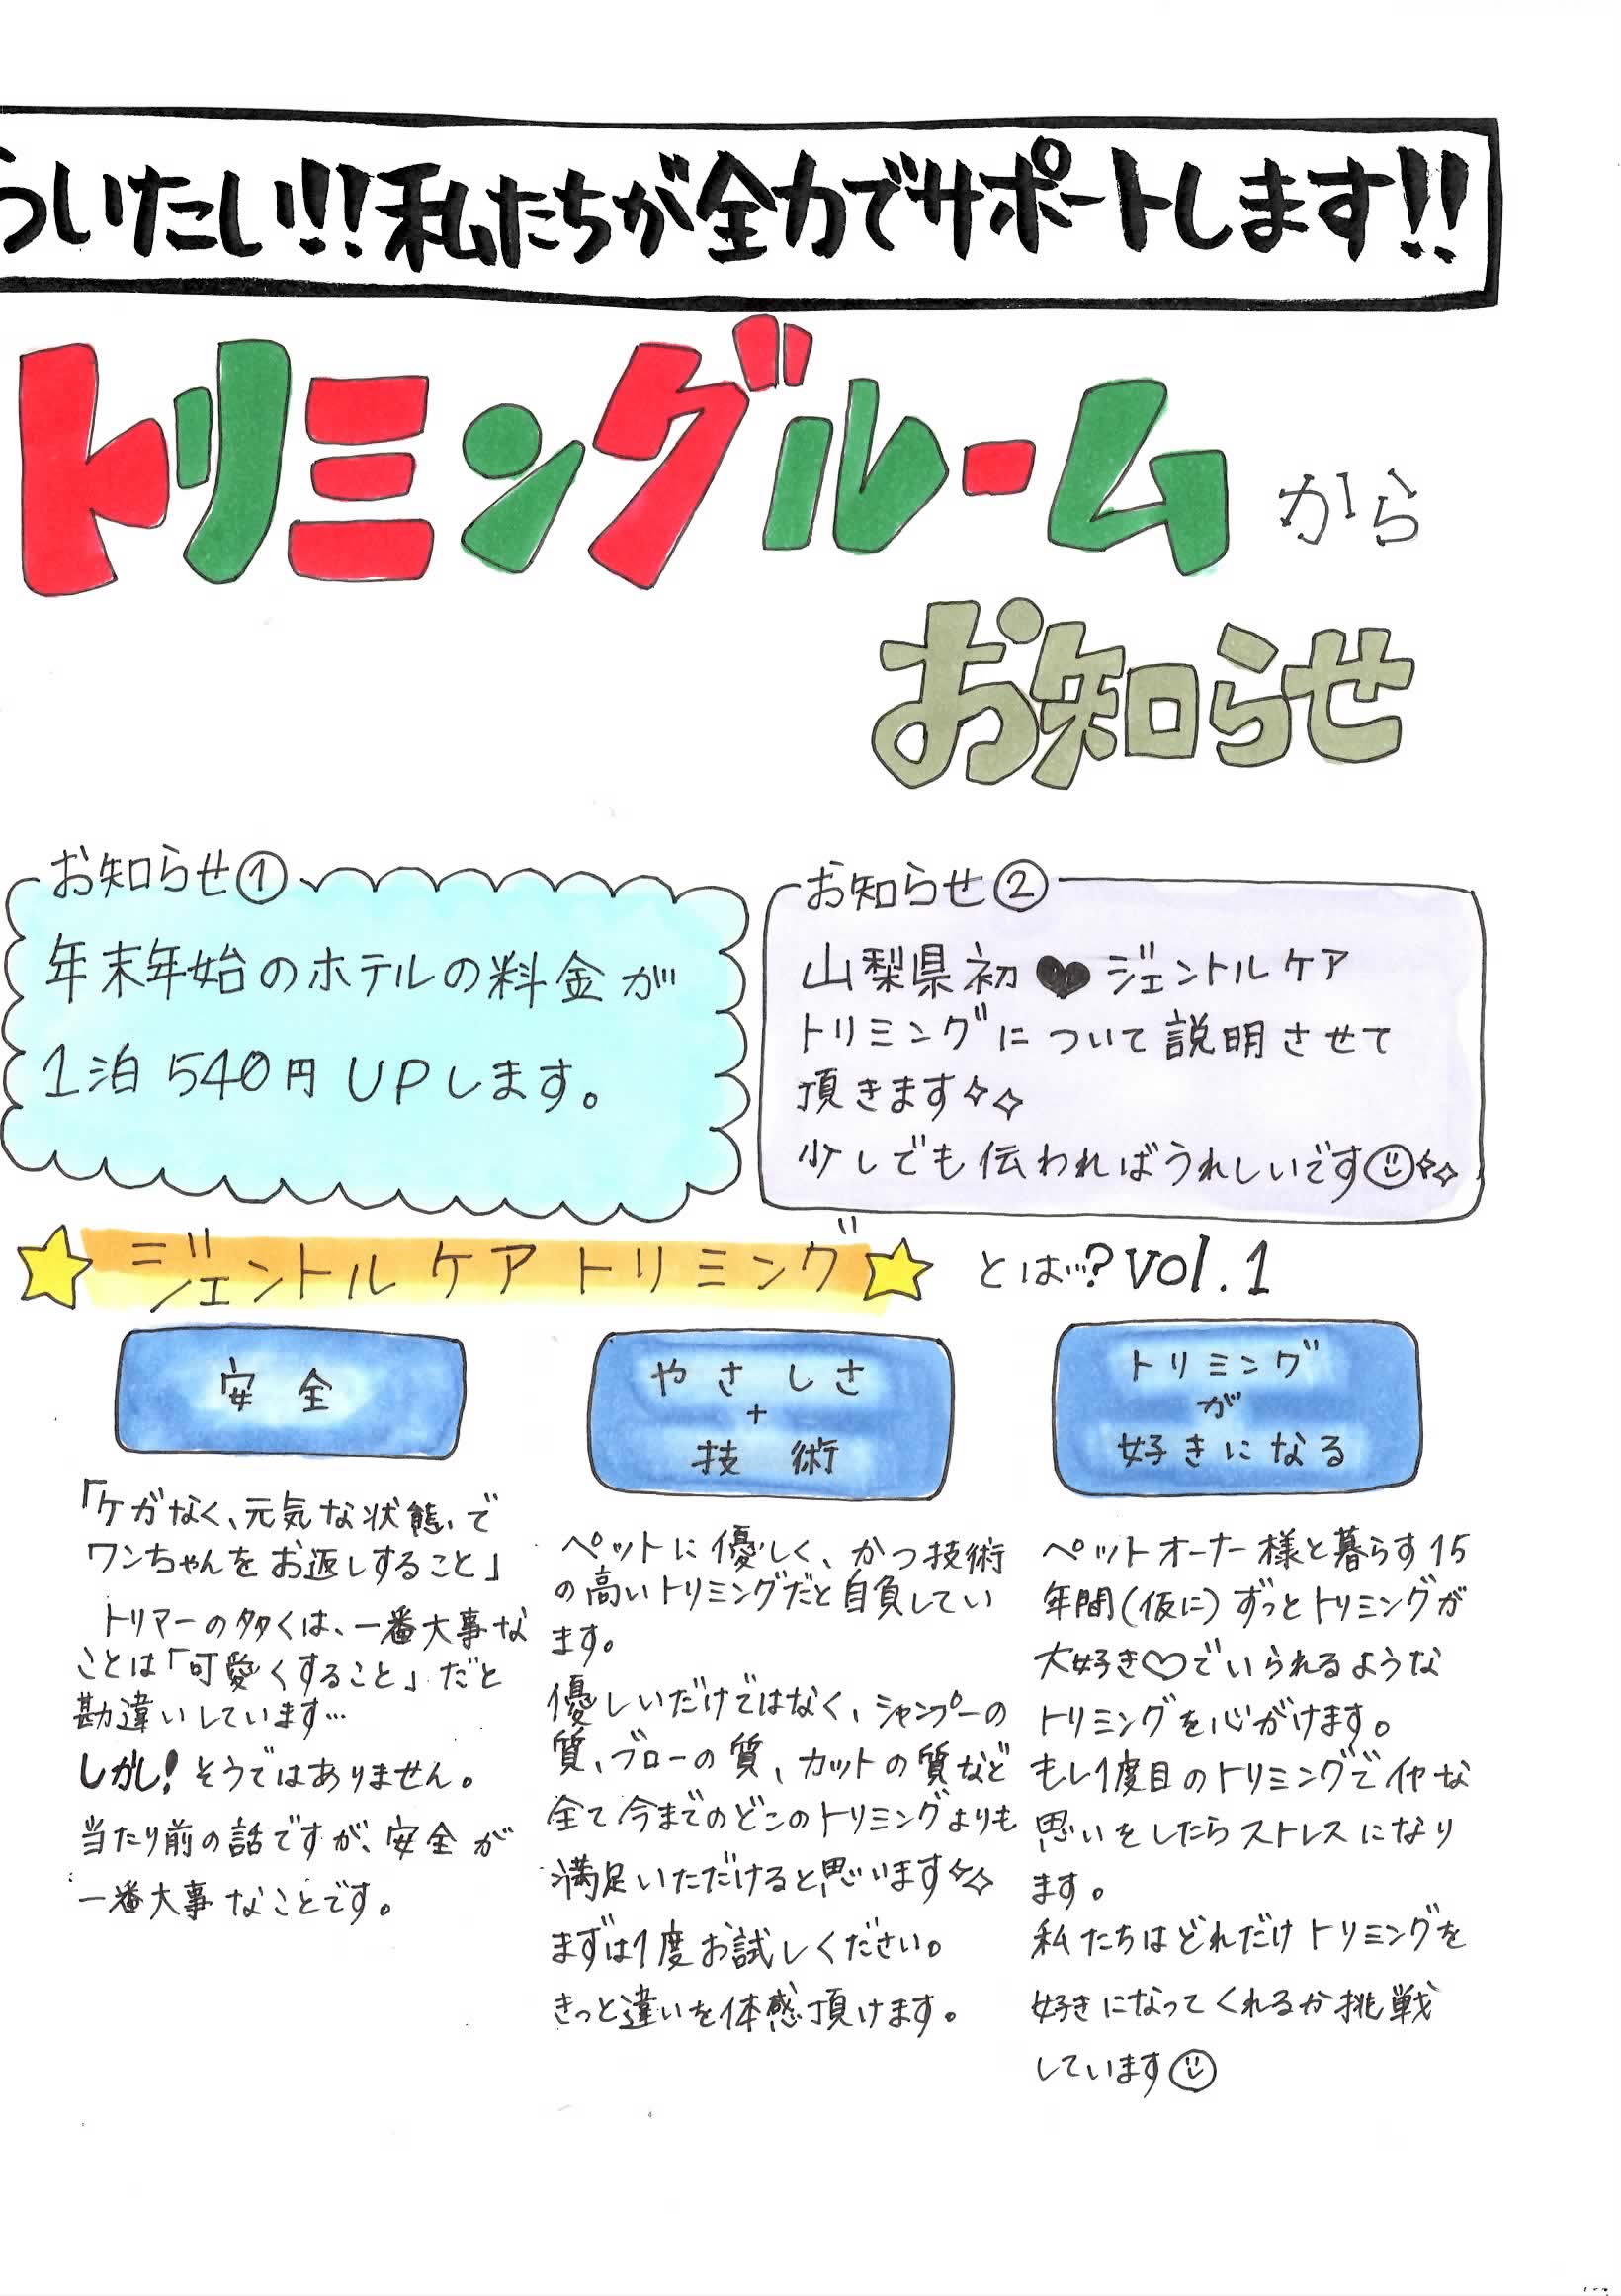 らいたい!!私たちが全力でサポートします!!
トリミングルームから
お知らせ
お知らせ①
年末年始のホテルの料金が
1泊540円UPします。
お知らせ②
山梨県初♥ジェントルケア
トリミングについて説明させて
頂きます✧✧
少しでも伝わればうれしいです☺✧✧
☆ジェントルケアトリミング☆とは…?Vol.1
安全
「ケガなく、元気な状態で
ワンちゃんをお返しすること」
トリマーの多くは、一番大事な
ことは「可愛くすること」だと
勘違いしています…
しかし!そうではありません。
当たり前の話ですが、安全が
一番大事なことです。
やさしさ
+
技術
ペットに優しく、かつ技術
の高いトリミングだと自負してい
ます。
優しいだけではなく、シャンプーの
質、ブローの質、カットの質など
全て今までのどこのトリミングよりも
満足いただけると思います✧✧
まずは1度お試しください。
きっと違いを体感頂けます。
トリミング
が
好きになる
ペットオーナー様と暮らす15
年間(仮に)ずっとトリミングが
大好き♡でいられるような
トリミングを心がけます。
もし1度目のトリミングでイヤな
思いをしたらストレスになり
ます。
私たちはどれだけトリミングを
好きになってくれるか挑戦
しています☺